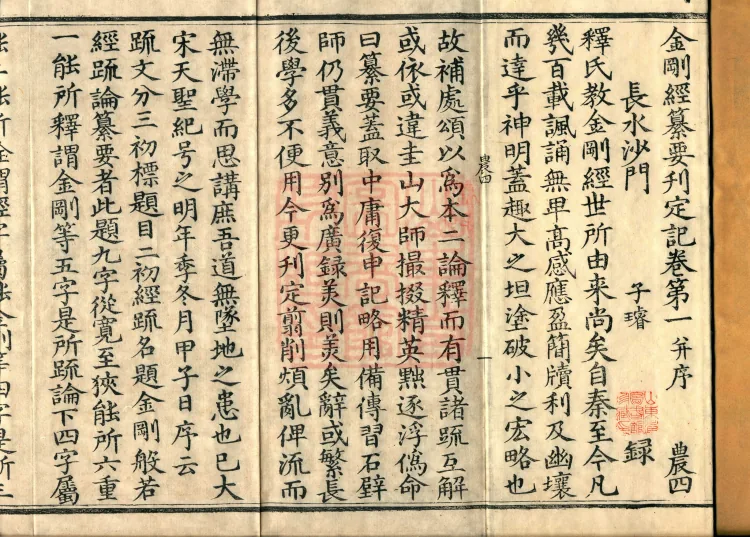 金剛經纂要刋定記卷第一 并序 農四
長水沙門 子璿 録
釋氏教金剛經世所由来尚矣自秦至今凡
㡬百載諷誦無卑髙感應盈簡牘利及幽壤
而達乎神明蓋趣大之坦塗破小之宏略也
農四
一
故補處頌以爲本二論釋而有貫諸䟽互解
或依或違圭山大師撮掇精英黜逐浮僞命
曰纂要蓋取中庸復申記略用備傳習石壁
師仍貫義意別爲廣録羙則羙矣辭或繁長
後學多不便用今更刋定翦削煩亂俾流而
無滯學而思講庶吾道無墜地之患也巳大
宋天聖紀号之明年季冬月甲子日序云
䟽文分三初標題目二初經䟽名題金剛般若
經䟽論纂要者此題九字從寛至狹能所六重
一能所釋謂金剛等五字是所䟽論下四字屬